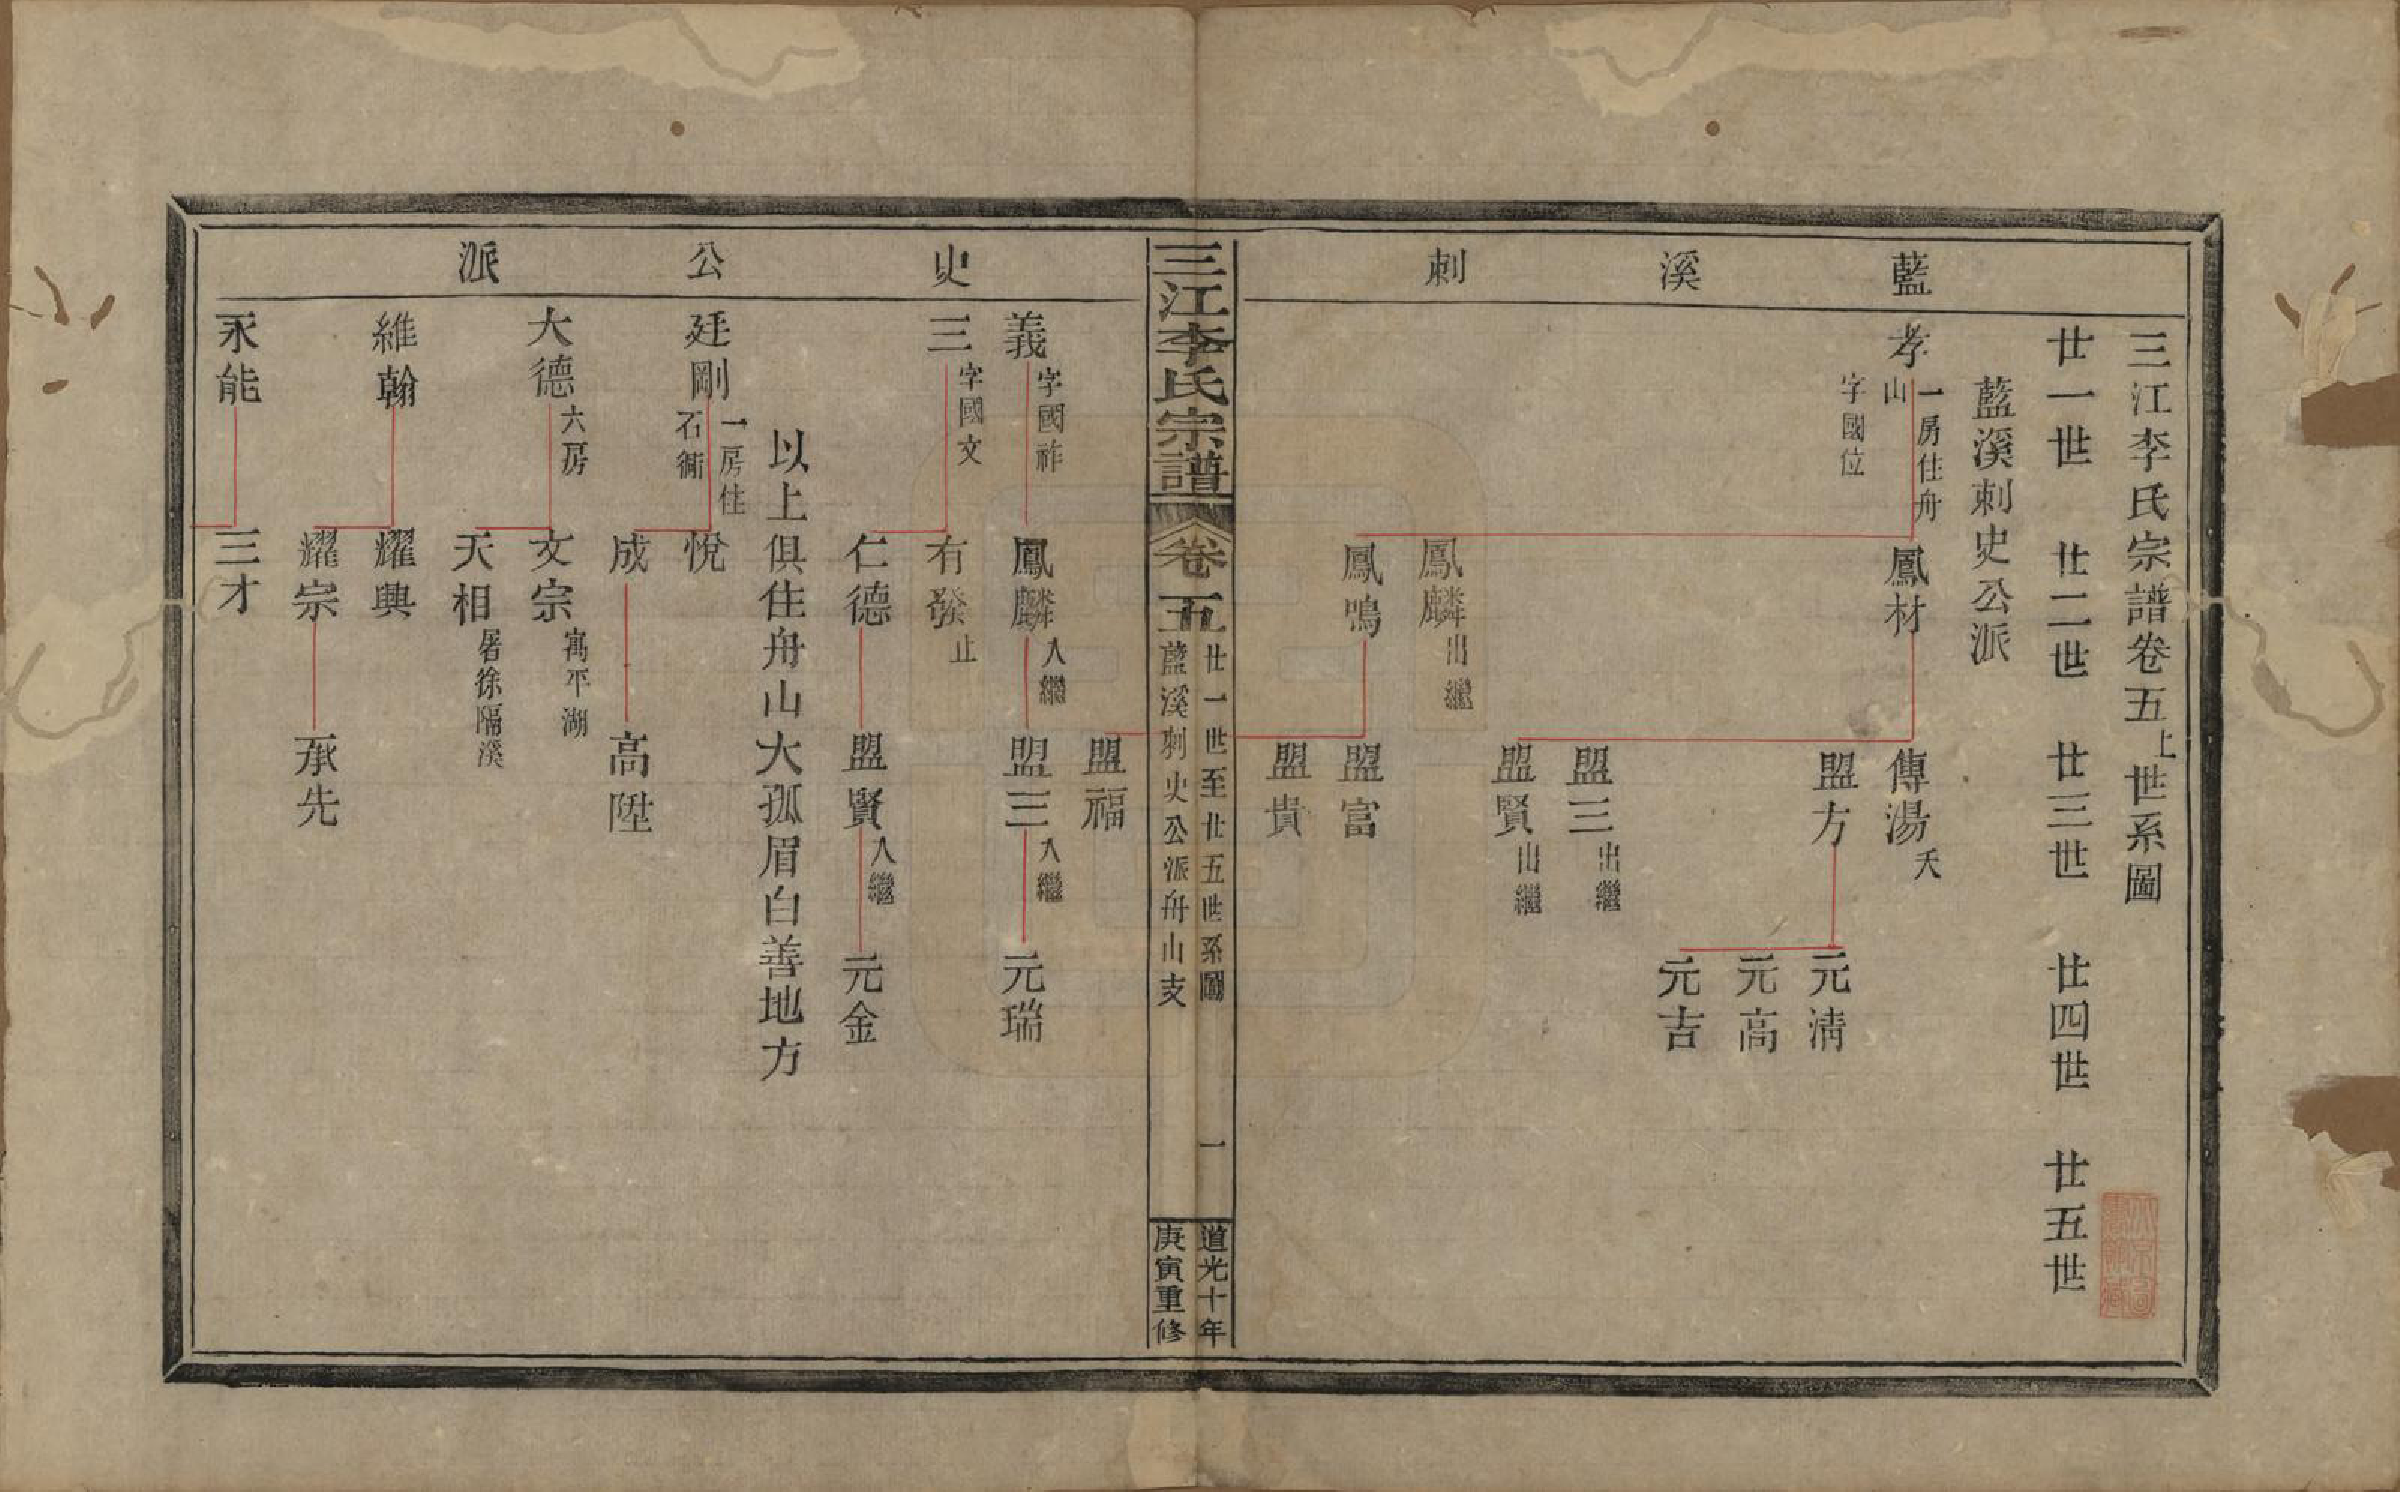 藍溪刺
三江李氏宗譜卷五上世系圖
廿一世 廿二世 廿三世 廿四世 廿五世
藍溪刺史公派
孝 一房住舟山 字國位
鳳材
傳湯 夭
盟方
元清
元高
元吉
盟三 出繼
盟賢 出繼
鳳麟 出繼
鳳鳴
盟富
盟貴
三江李氏宗譜 卷五 廿一世至廿五世系圖 藍溪刺史公派舟山支 一 道光十年庚寅重修
史公派
盟福
義 字國祚
鳳麟 入繼
盟三 入繼
元瑞
三 字國文
有發 止
仁德
盟賢 入繼
元金
以上俱住舟山大孤眉白善地方
廷剛 一房住石衕
悅
成
高陞
大德 六房
文宗 寓平湖
天相 居徐隔溪
維翰
耀興
耀宗
承先
永能
三才